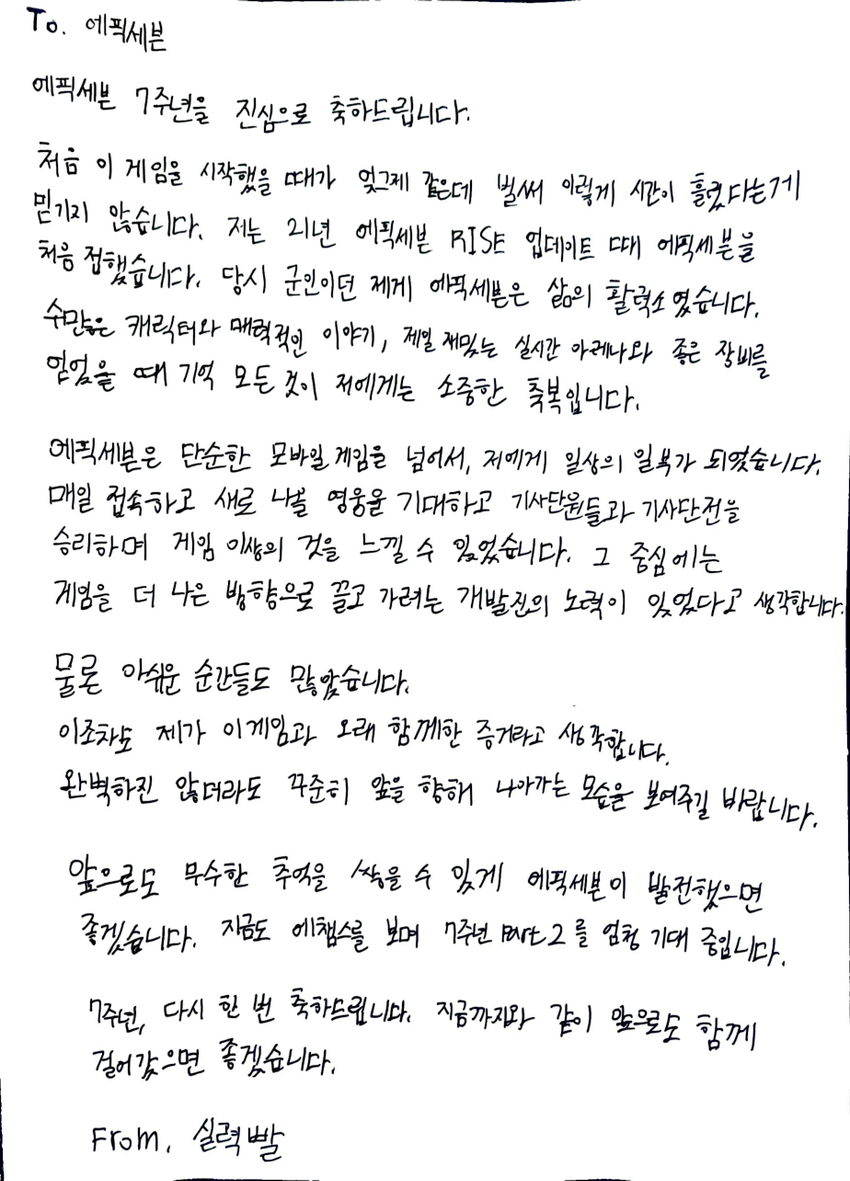 To. 에픽세븐
에픽세븐 7주년을 진심으로 축하드립니다.
처음 이 게임을 시작했을 때가 엊그제 같은데 벌써 이렇게 시간이 흘렀다는게
믿기지 않습니다. 저는 21년 에픽세븐 RISE 업데이트 때 에픽세븐을
처음 접했습니다. 당시 군인이던 제게 에픽세븐은 삶의 활력소였습니다.
수많은 캐릭터와 매력적인 이야기, 제일 재밌는 실시간 아레나와 좋은 장비를
얻었을 때 기억 모든 것이 저에게는 소중한 축복입니다.
에픽세븐은 단순한 모바일 게임을 넘어서, 저에게 일상의 일부가 되었습니다.
매일 접속하고 새로 나올 영웅을 기대하고 기사단원들과 기사단전을
승리하며 게임 이상의 것을 느낄 수 있었습니다. 그 중심에는
게임을 더 나은 방향으로 끌고 가려는 개발진의 노력이 있었다고 생각합니다.
물론 아쉬운 순간들도 많았습니다.
이조차도 제가 이게임과 오래 함께한 증거라고 생각합니다.
완벽하진 않더라도 꾸준히 앞을 향해 나아가는 모습을 보여주길 바랍니다.
앞으로도 무수한 추억을 쌓을 수 있게 에픽세븐이 발전했으면
좋겠습니다. 지금도 에챔스를 보며 7주년 Part 2를 엄청 기대 중입니다.
7주년, 다시 한 번 축하드립니다. 지금까지와 같이 앞으로도 함께
걸어갔으면 좋겠습니다.
From. 실력빨